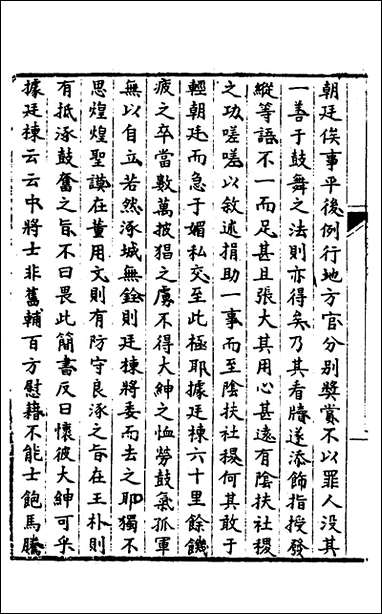 朝廷俟事平後例行地方官分别奬賞不以罪人没其
一善于鼓舞之法則亦得矣乃其看牘遂添飾指授發
縱等語不一而足甚且張大其用心甚遠有陰扶社稷
之功嗟嗟以敘述捐助一事而至陰扶社稷何其敢于
輕朝廷而急于媚私交至此極耶據廷棟六十里餘饑
疲之卒當數萬披猖之虜不得大紳之恤勞鼓氣孤軍
無以自立若然涿城無銓則廷棟將委而去之耶獨不
思煌煌聖謨在董用文則有防守良涿之旨在王朴則
有抵涿鼓奮之旨不曰畏此簡書反曰懷彼大紳可乎
據廷棟云云中將士非舊輔百方慰藉不能士飽馬騰